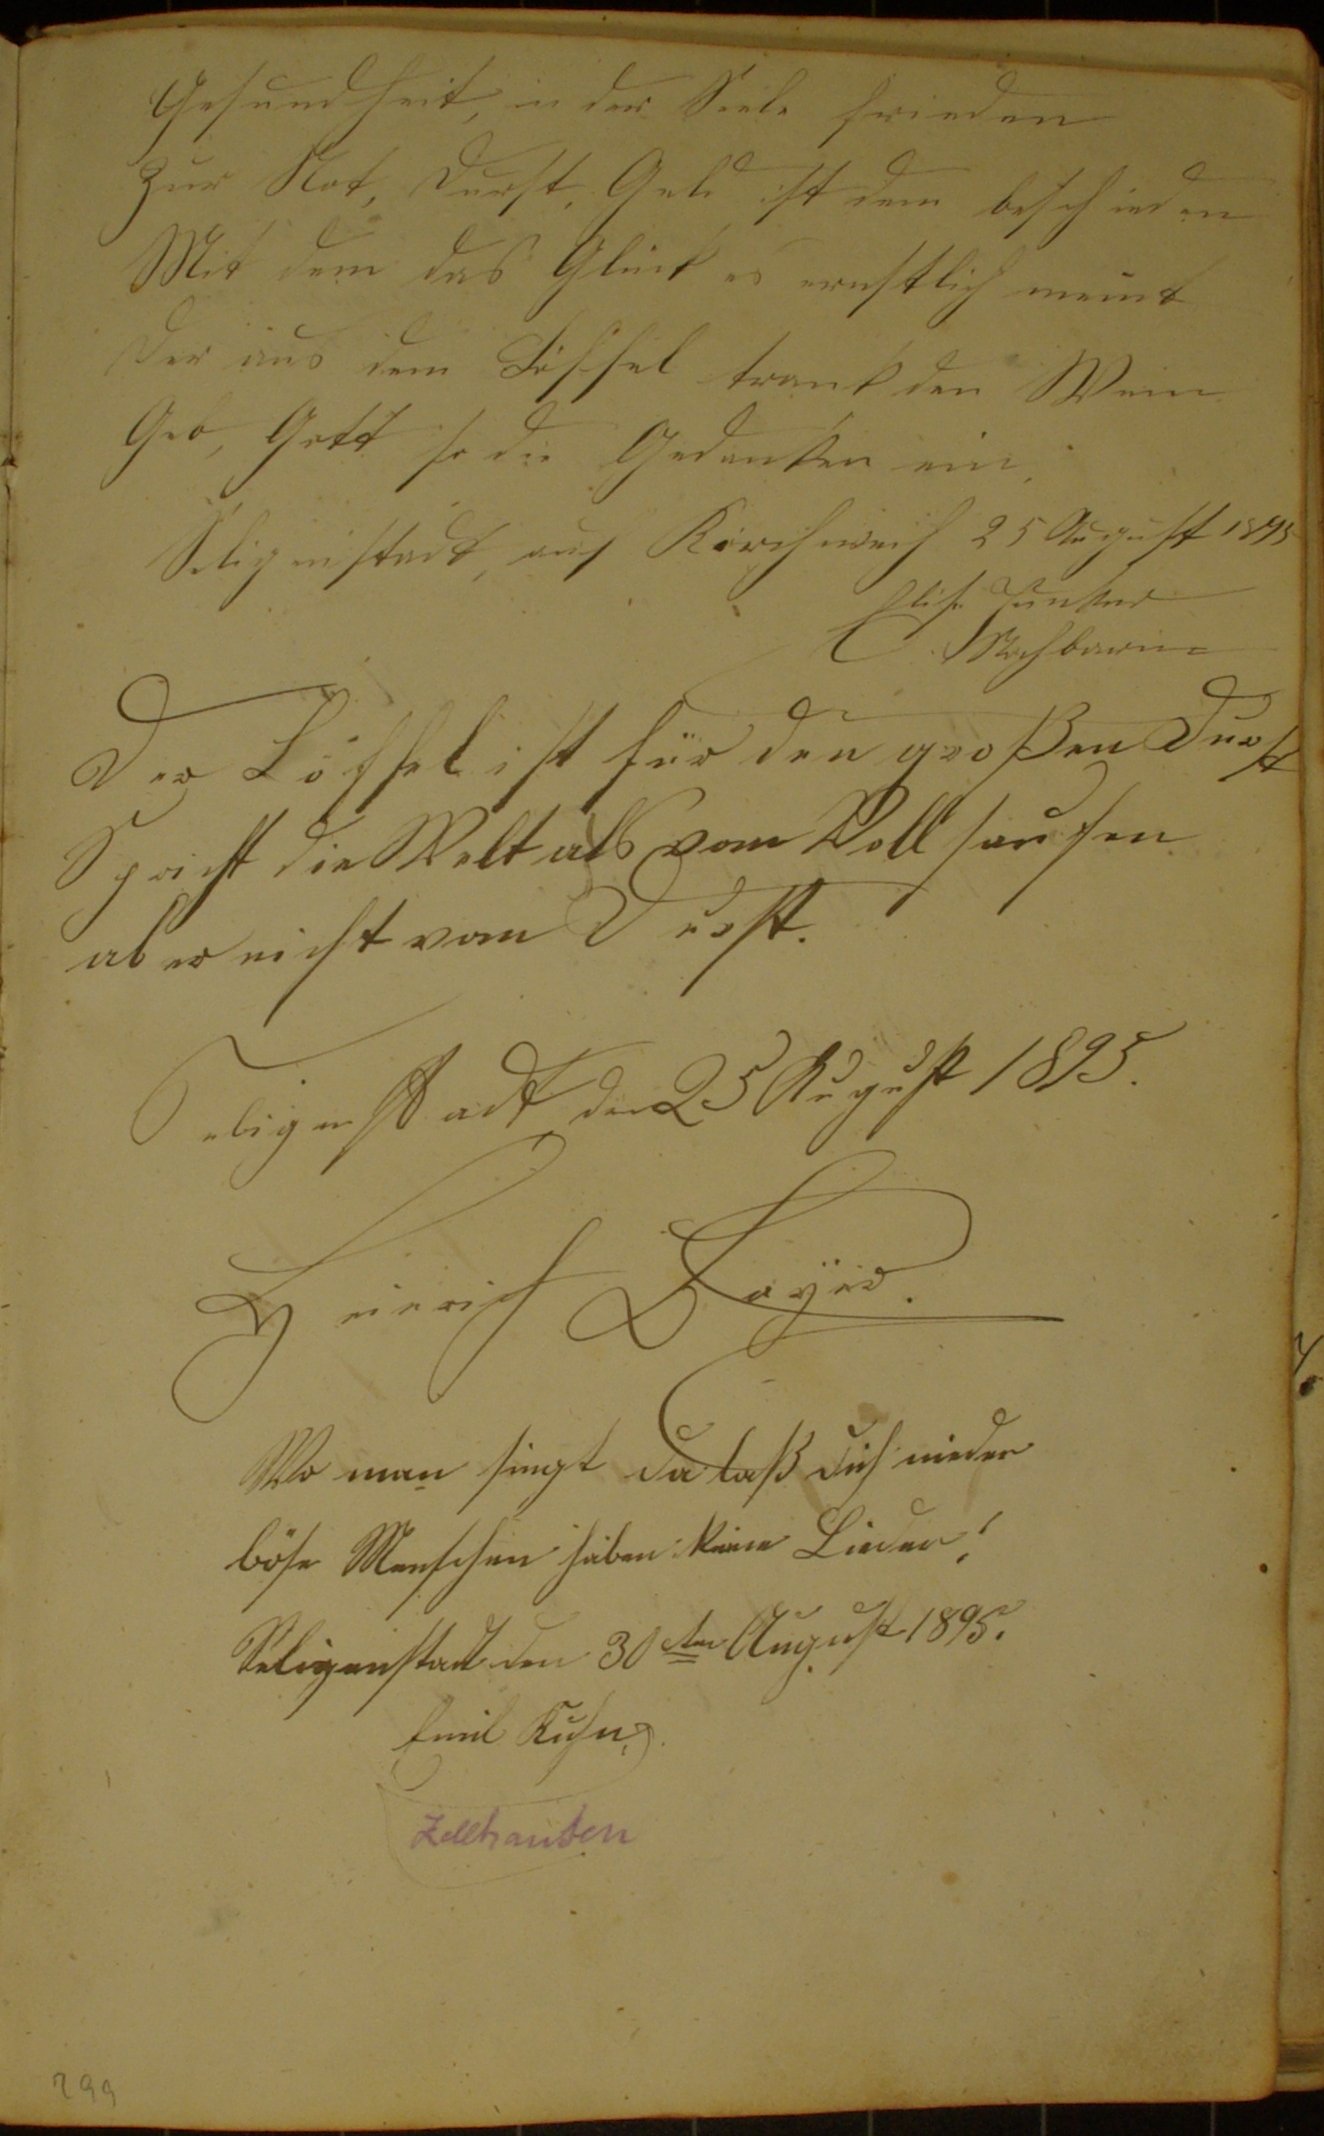 Gesundheit, in der Seele Frieden
Zur Not, Durst, Geld ist dem beschieden
Mit dem das Glück es ernstlich meint
Der aus dem Löffel trank den Wein
Geb, Gott so die Gedanken ein,
Seligenstadt, auf Kirchweih 25 August 1895
Elise Junker
Nachbarin
Der Löffel ist für den großen Durst
Spricht die Welt als vom Vollsaufen
aber nicht vom Durst.
Seligenstadt den 25 August 1895.
Heinrich Bayer.
Wo man singt da laß dich nieder
böse Menschen haben keine Lieder!
Seligenstadt den 30ten August 1895.
Emil Kuhn.
Zellhausen
299